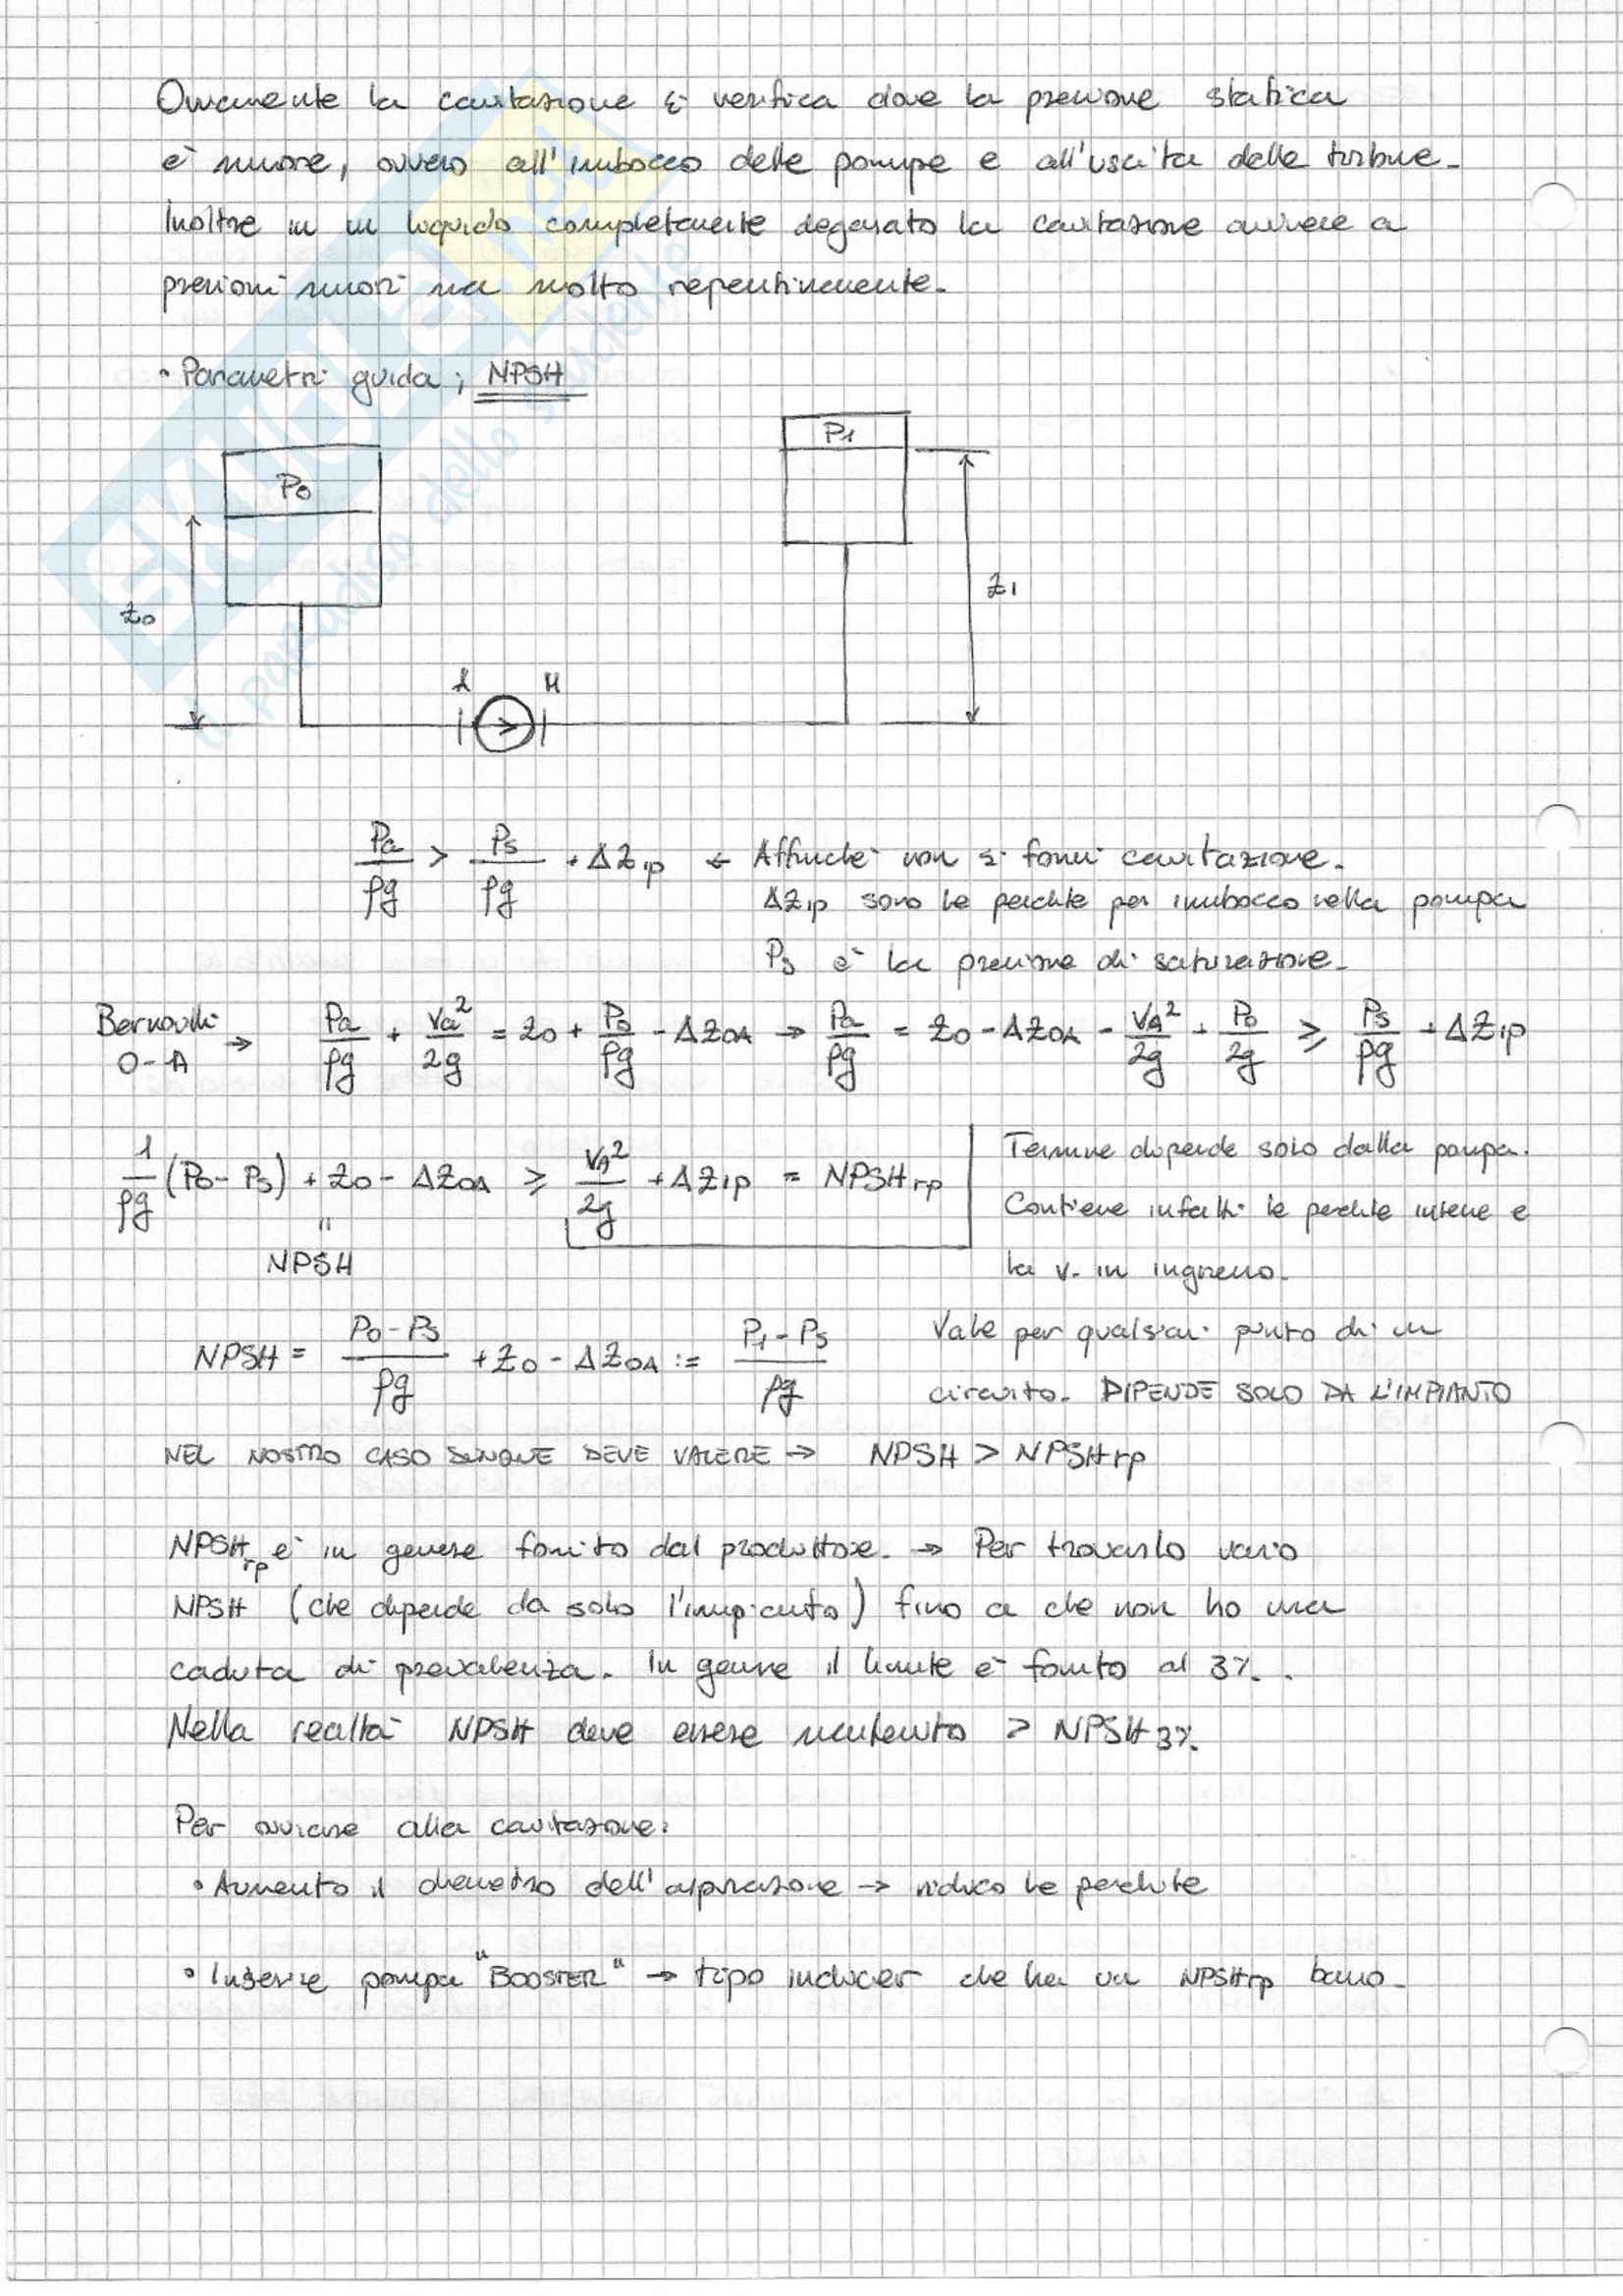 Ovviamente la cavitazione si verifica dove la pressione statica
è minore, ovvero all'imbocco delle pompe e all'uscita delle turbine.
Inoltre in un liquido completamente degasato la cavitazione avviene a
pressioni minori ma molto repentinamente.
• Parametri guida; NPSH
P0
P1
z0
z1
A M
Pa/ρg > Ps/ρg + ΔZip ← Affinché non si formi cavitazione.
ΔZip sono le perdite per imbocco nella pompa
Ps è la pressione di saturazione.
Bernoulli 0-A → Pa/ρg + Va²/2g = z0 + P0/ρg - ΔZ0A → Pa/ρg = z0 - ΔZ0A - VA²/2g + P0/2g ≥ Ps/ρg + ΔZip
1/ρg (P0 - Ps) + z0 - ΔZ0A ≥ VA²/2g + ΔZip = NPSHrp
"
NPSH
Termine dipende solo dalla pompa.
Contiene infatti le perdite interne e
la v. in ingresso.
NPSH = P0 - Ps/ρg + z0 - ΔZ0A := P1 - Ps/ρg
Vale per qualsiasi punto di un
circuito. DIPENDE SOLO DA L'IMPIANTO
NEL NOSTRO CASO DUNQUE DEVE VALERE → NPSH > NPSHrp
NPSHrp è in genere fornito dal produttore. → Per trovarlo vario
NPSH (che dipende da solo l'impianto) fino a che non ho una
caduta di prevalenza. In genere il limite è fornito al 3%.
Nella realtà NPSH deve essere mantenuto > NPSH3%
Per ovviare alla cavitazione:
• Aumento il diametro dell'aspirazione → riduco le perdite
• Inserire pompa "BOOSTER" → tipo inducer che ha un NPSHrp basso.